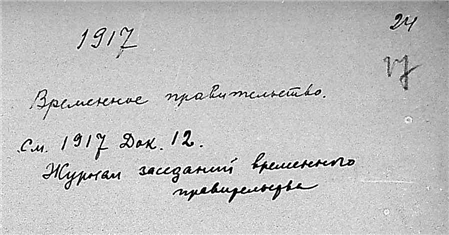 1917
24
Временное правительство.
См. 1917 Док. 12.
Журнал заседаний временного
правительства